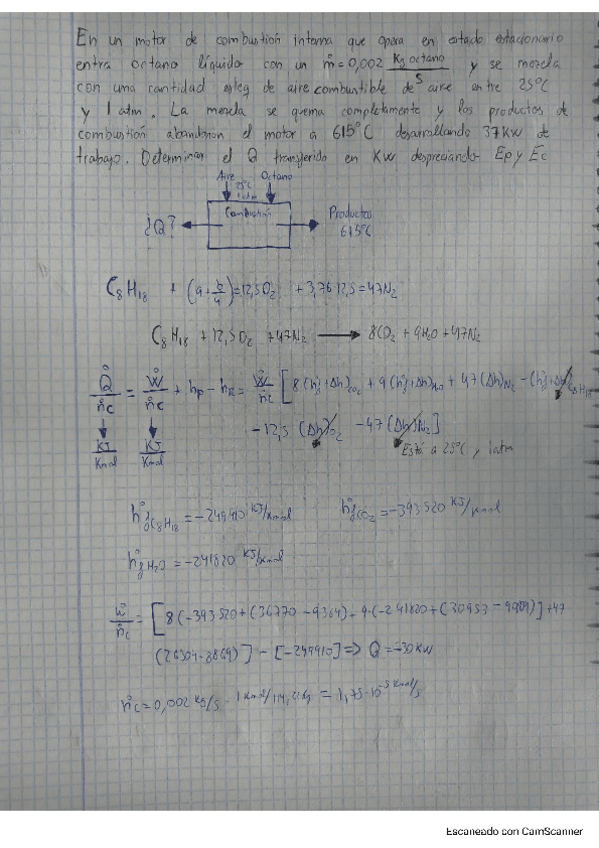 En un motor de combustión interna que opera en estado estacionario
entra octano líquido con un ṁ=0,002 Kg octano/s y se mezcla
con una cantidad esteq de aire combustible de aire entre 25°C
y 1 atm. La mezcla se quema completamente y los productos de
combustión abandonan el motor a 615°C desarrollando 37 kW de
trabajo. Determinar el Q transferido en KW despreciando Ep y Ec
Aire Octano
25°C
1 atm
Combustión
¿Q?
Productos
615°C
C8H18 + (a+b/4)=12,5O2 +3,76·12,5=47N2
C8H18 +12,5O2 +47N2 → 8CO2 + 9H2O +47N2
Q̇/ṅc = Ẇ/ṅc + hp - hR = Ẇ/ṅc [8(h°f+Δh)CO2 + 9(h°f+Δh)H2O + 47(Δh)N2 - (h°f+Δh)C8H18
-12,5 (Δh)O2 -47(Δh)N2]
KJ/Kmol KJ/Kmol
Está a 25°C y 1atm
h°fC8H18 = -249910 KJ/Kmol h°fCO2 = -393520 KJ/Kmol
h°fH2O = -241820 KJ/Kmol
Ẇ/ṅc = [8(-393520+(36770-9364)+9·(-241820+(30953-9904)]+47
(26304-8869)] - [-249910] => Q = -30 KW
ṅc=0,002 KG/s · 1 Kmol/114,22Kg = 1,75·10^-5 Kmol/s
Escaneado con CamScanner